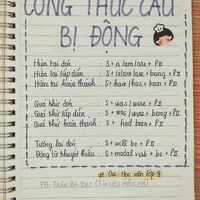 CÔNG THỨC CÂU
BỊ ĐỘNG
Hiện tại đơn : S + is/am/are + PII
Hiện tại tiếp diễn : S + is/am/are + being + PII
Hiện tại hoàn thành : S + have/has + been + PII
Quá khứ đơn : S + was/were + PII
Quá khứ tiếp diễn : S + was/were + being + PII
Quá khứ hoàn thành : S + had been + PII
Tương lai đơn : S + will be + PII
Động từ khuyết thiếu : S + modal verb + be + PII
Học văn lớp 9
FB: TRẦN BÁ ĐẠT (TÀI LIỆU MIỄN PHÍ)